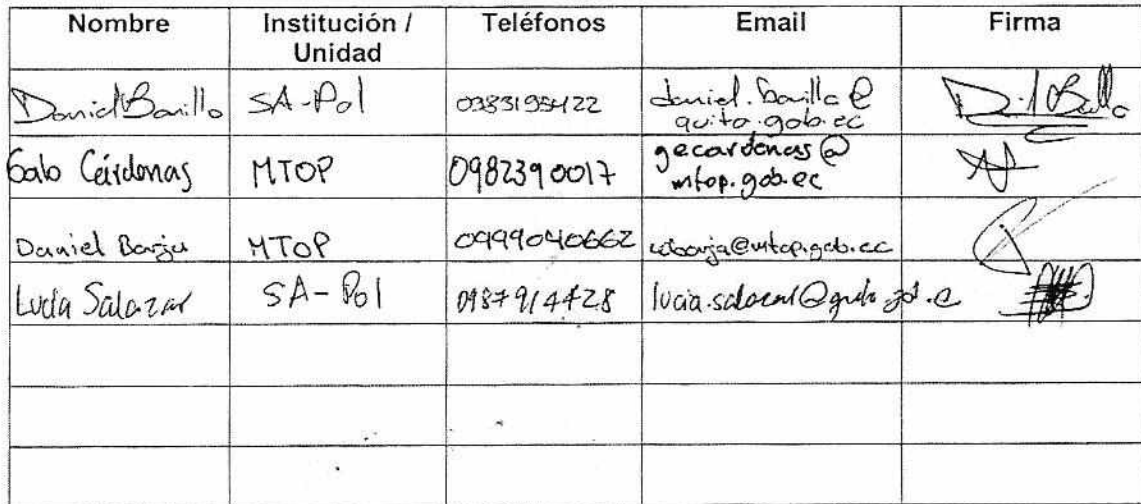 Nombre Institución / Unidad Teléfonos Email Firma
Daniel Barillo SA-Pol 0983195422 daniel.barillo@
quito.gob.ec
Galo Cárdenas MTOP 0982390017 gecardenas@
mtop.gob.ec
Daniel Borja MTOP 0999040662 @mtop.gob.ec
Lucía Salazar SA-Pol 0987914428 lucia.salazar@quito.gob.ec